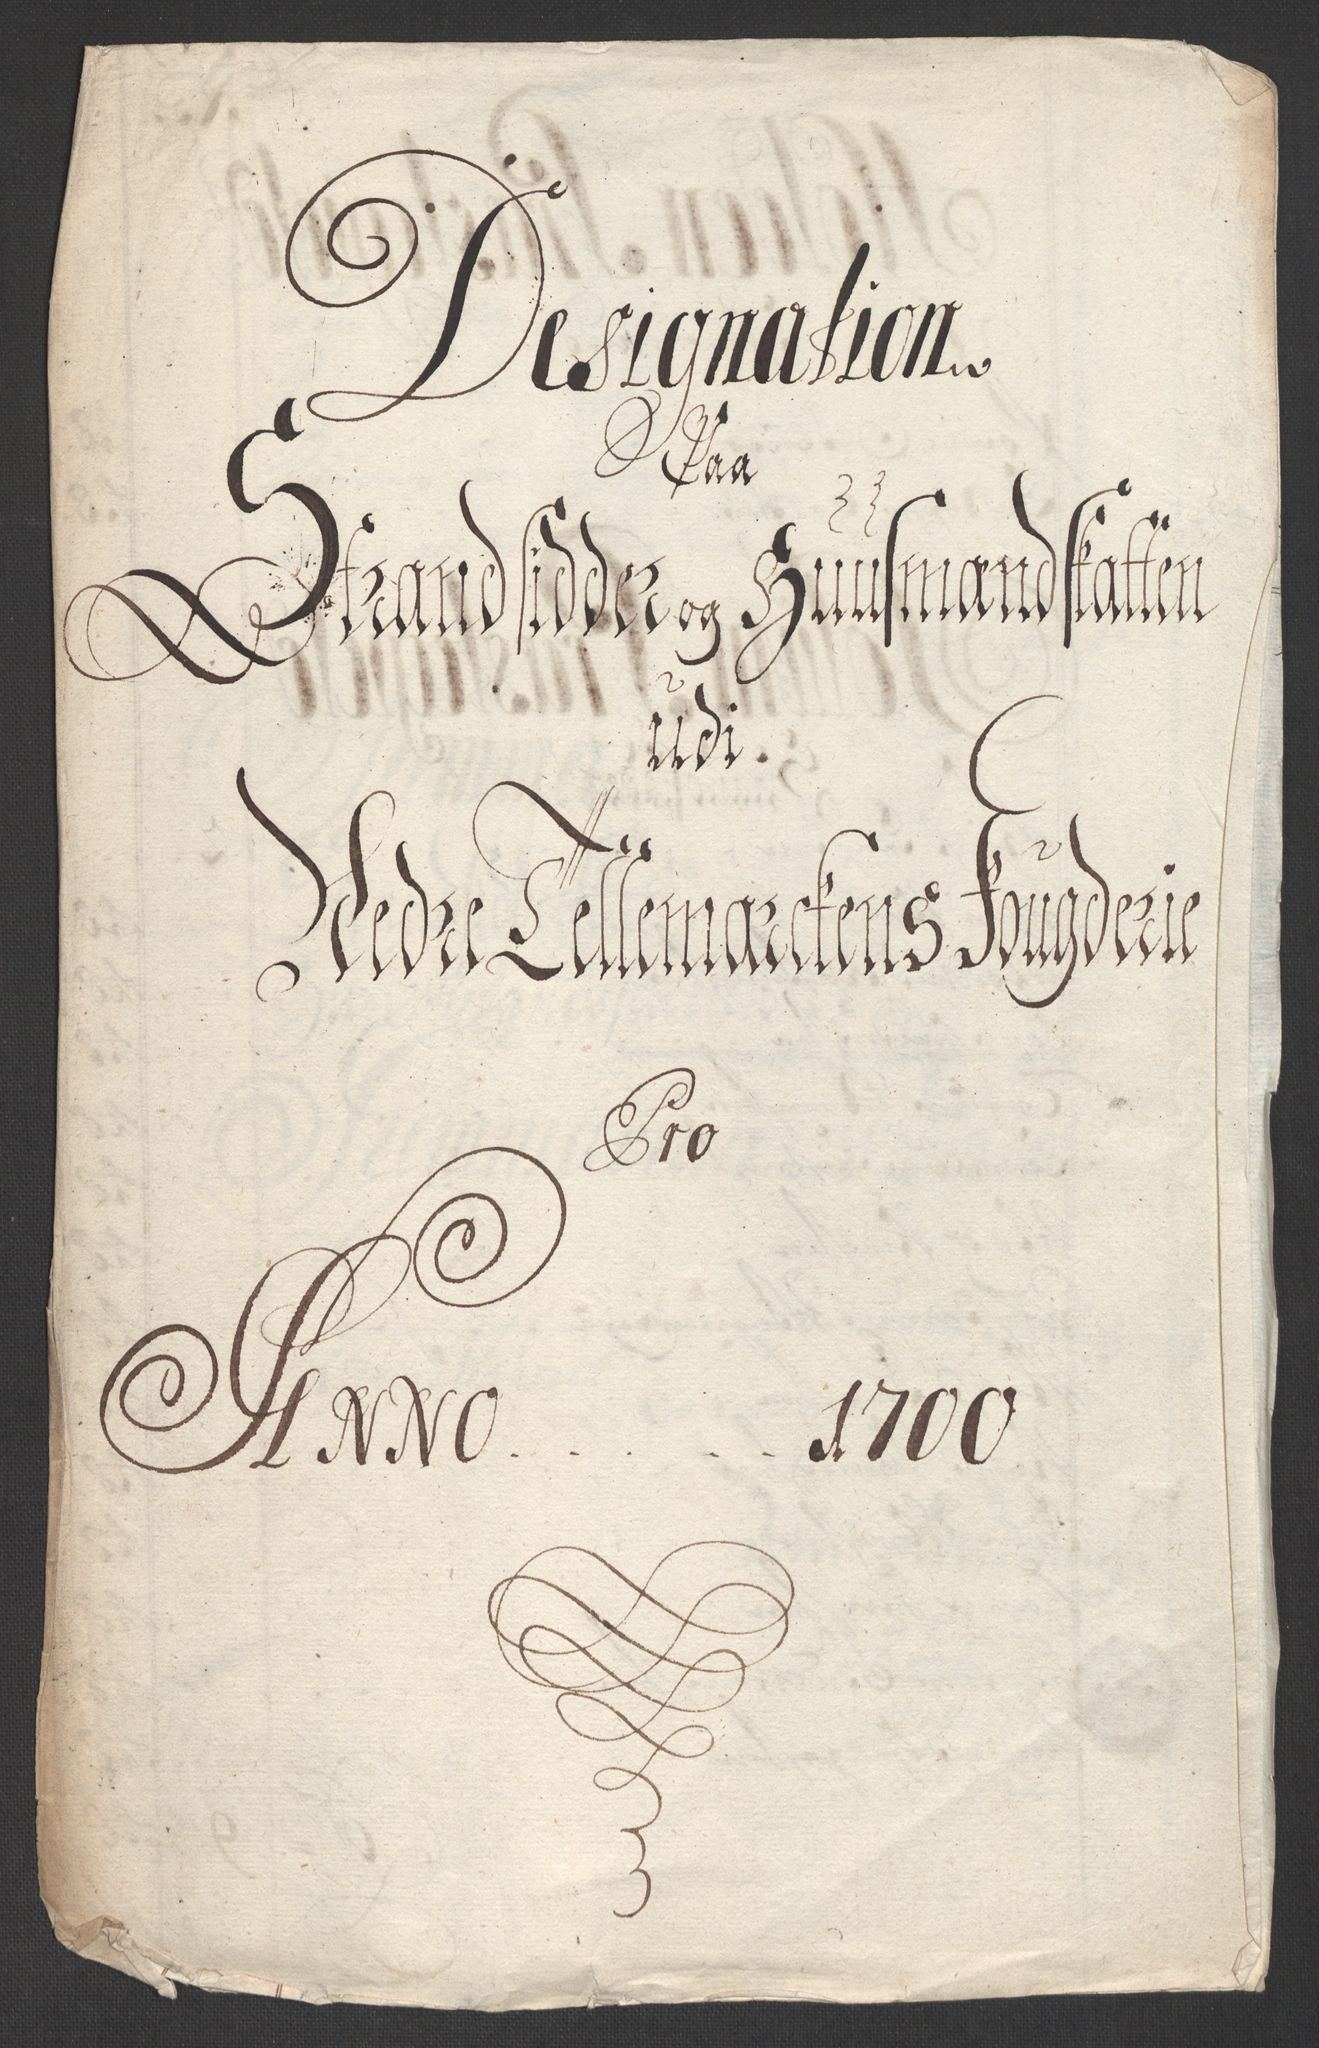 Designation
Paa
Strandsidder og Huusmandskatten
udi
Nedre Tellemarckens Fougderie
Pro
Anno . . . . . . 1700